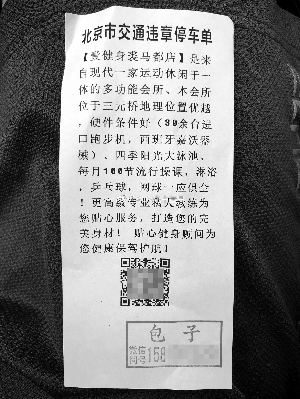 北京市交通违章停车单
【爱健身裘马都店】是来
自现代一家运动休闲于一
体的多功能会所、本会所
位于三元桥地理位置优越，
硬件条件好（80余台进
口跑步机，西班牙嘉沃器
械）、四季阳光大泳池、
每月100节流行操课，淋浴
、乒乓球，网球一应俱全
！更高薪专业私人教练为
您贴心服务，打造您的完
美身材！贴心健身顾问为
您健康保驾护航！
包子
微信
同号
158